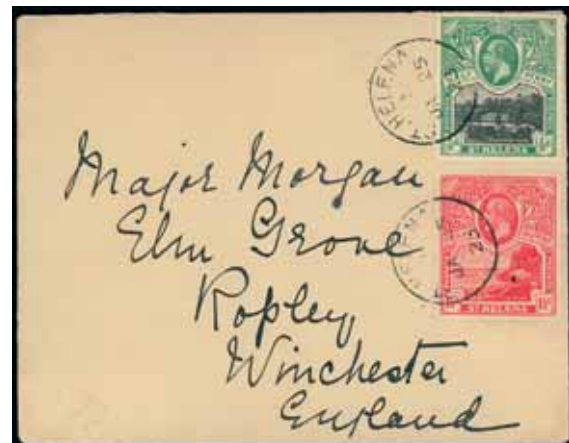 ST. HELENA
ST HELENA
HELENA
ST HELENA
Major Morgan
Elm Grove
Ropley
Winchester
England